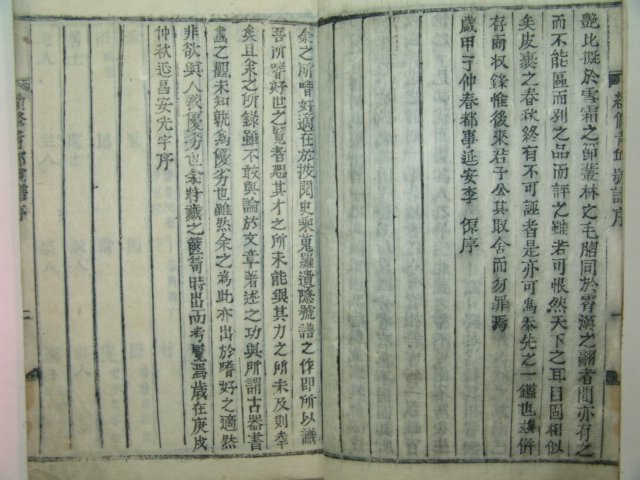 艶比擬於雪霜之節叢林之毛脂同於霄漢之翮者間亦有之
而不能區而別之品而評之雖若可恨然天下之耳目固相似
矣皮裹之春秋終有不可誣者是亦可為泰先之一鑑也
存而収録惟後來君子公其取舍而勿罪焉
歲甲子仲春都事延安李 序
余之所嗜好適在於披閱史乘蒐羅遺隱號譜之作即所以識
吾所嗜好世之覽者恕其才之所未能與其力之所未及則幸
矣且余之所録雖不敢輿論於文章著述之功與所謂古器書
畵之觀未知孰為優劣也雖然余之為此亦出於嗜好之適然
非欲與人較優劣也余特藏之篋笥時出而考覧焉歲在庚戌
仲秋 昌安光宇序